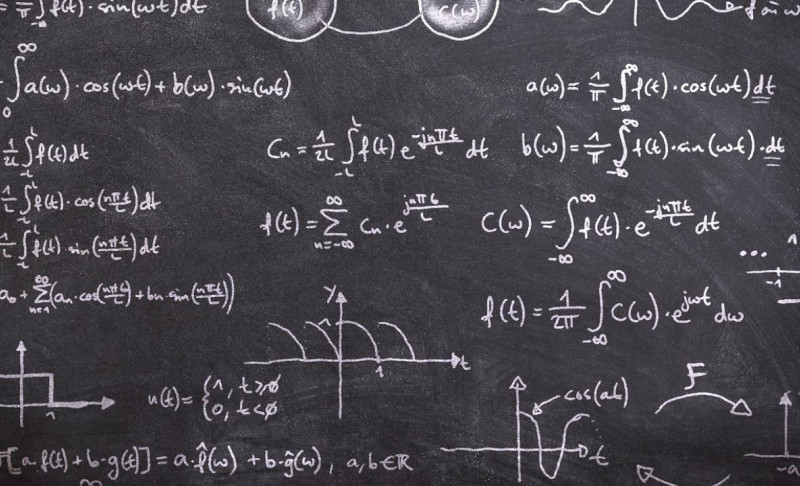 = 1/π ∫_{-∞} f(t)·sin(ωt)dt
f(t) c(ω)
∫_0^∞ a(ω)·cos(ωt)+b(ω)·sin(ωt)
a(ω)= 1/π ∫_{-∞}^{∞} f(t)·cos(ωt)dt
1/2L ∫_{-L}^{L} f(t)dt
C_n = 1/2L ∫_{-L}^{L} f(t) e^{-jnπt/L} dt
b(ω)= 1/π ∫_{-∞}^{∞} f(t)·sin(ωt)·dt
1/L ∫_{-L}^{L} f(t)·cos(nπt/L)dt
1/L ∫_{-L}^{L} f(t)·sin(nπt/L)dt
f(t) = ∑_{n=-∞}^{∞} C_n·e^{jnπt/L}
C(ω) = ∫_{-∞}^{∞} f(t)·e^{-jnπt/L} dt
... 1
-1
a_0 + ∑_{n=1}^{∞}(a_n·cos(nπt/L)+b_n·sin(nπt/L))
f(t) = 1/2π ∫_{-∞}^{∞} C(ω)·e^{jωt} dω
y
1
1 t
1
u(t)= {1, t≥0
0, t<0
cos(at)
t
F
-a
[a·f(t)+b·g(t)] = a·f̂(ω) + b·ĝ(ω), a,b∈ℝ
∞